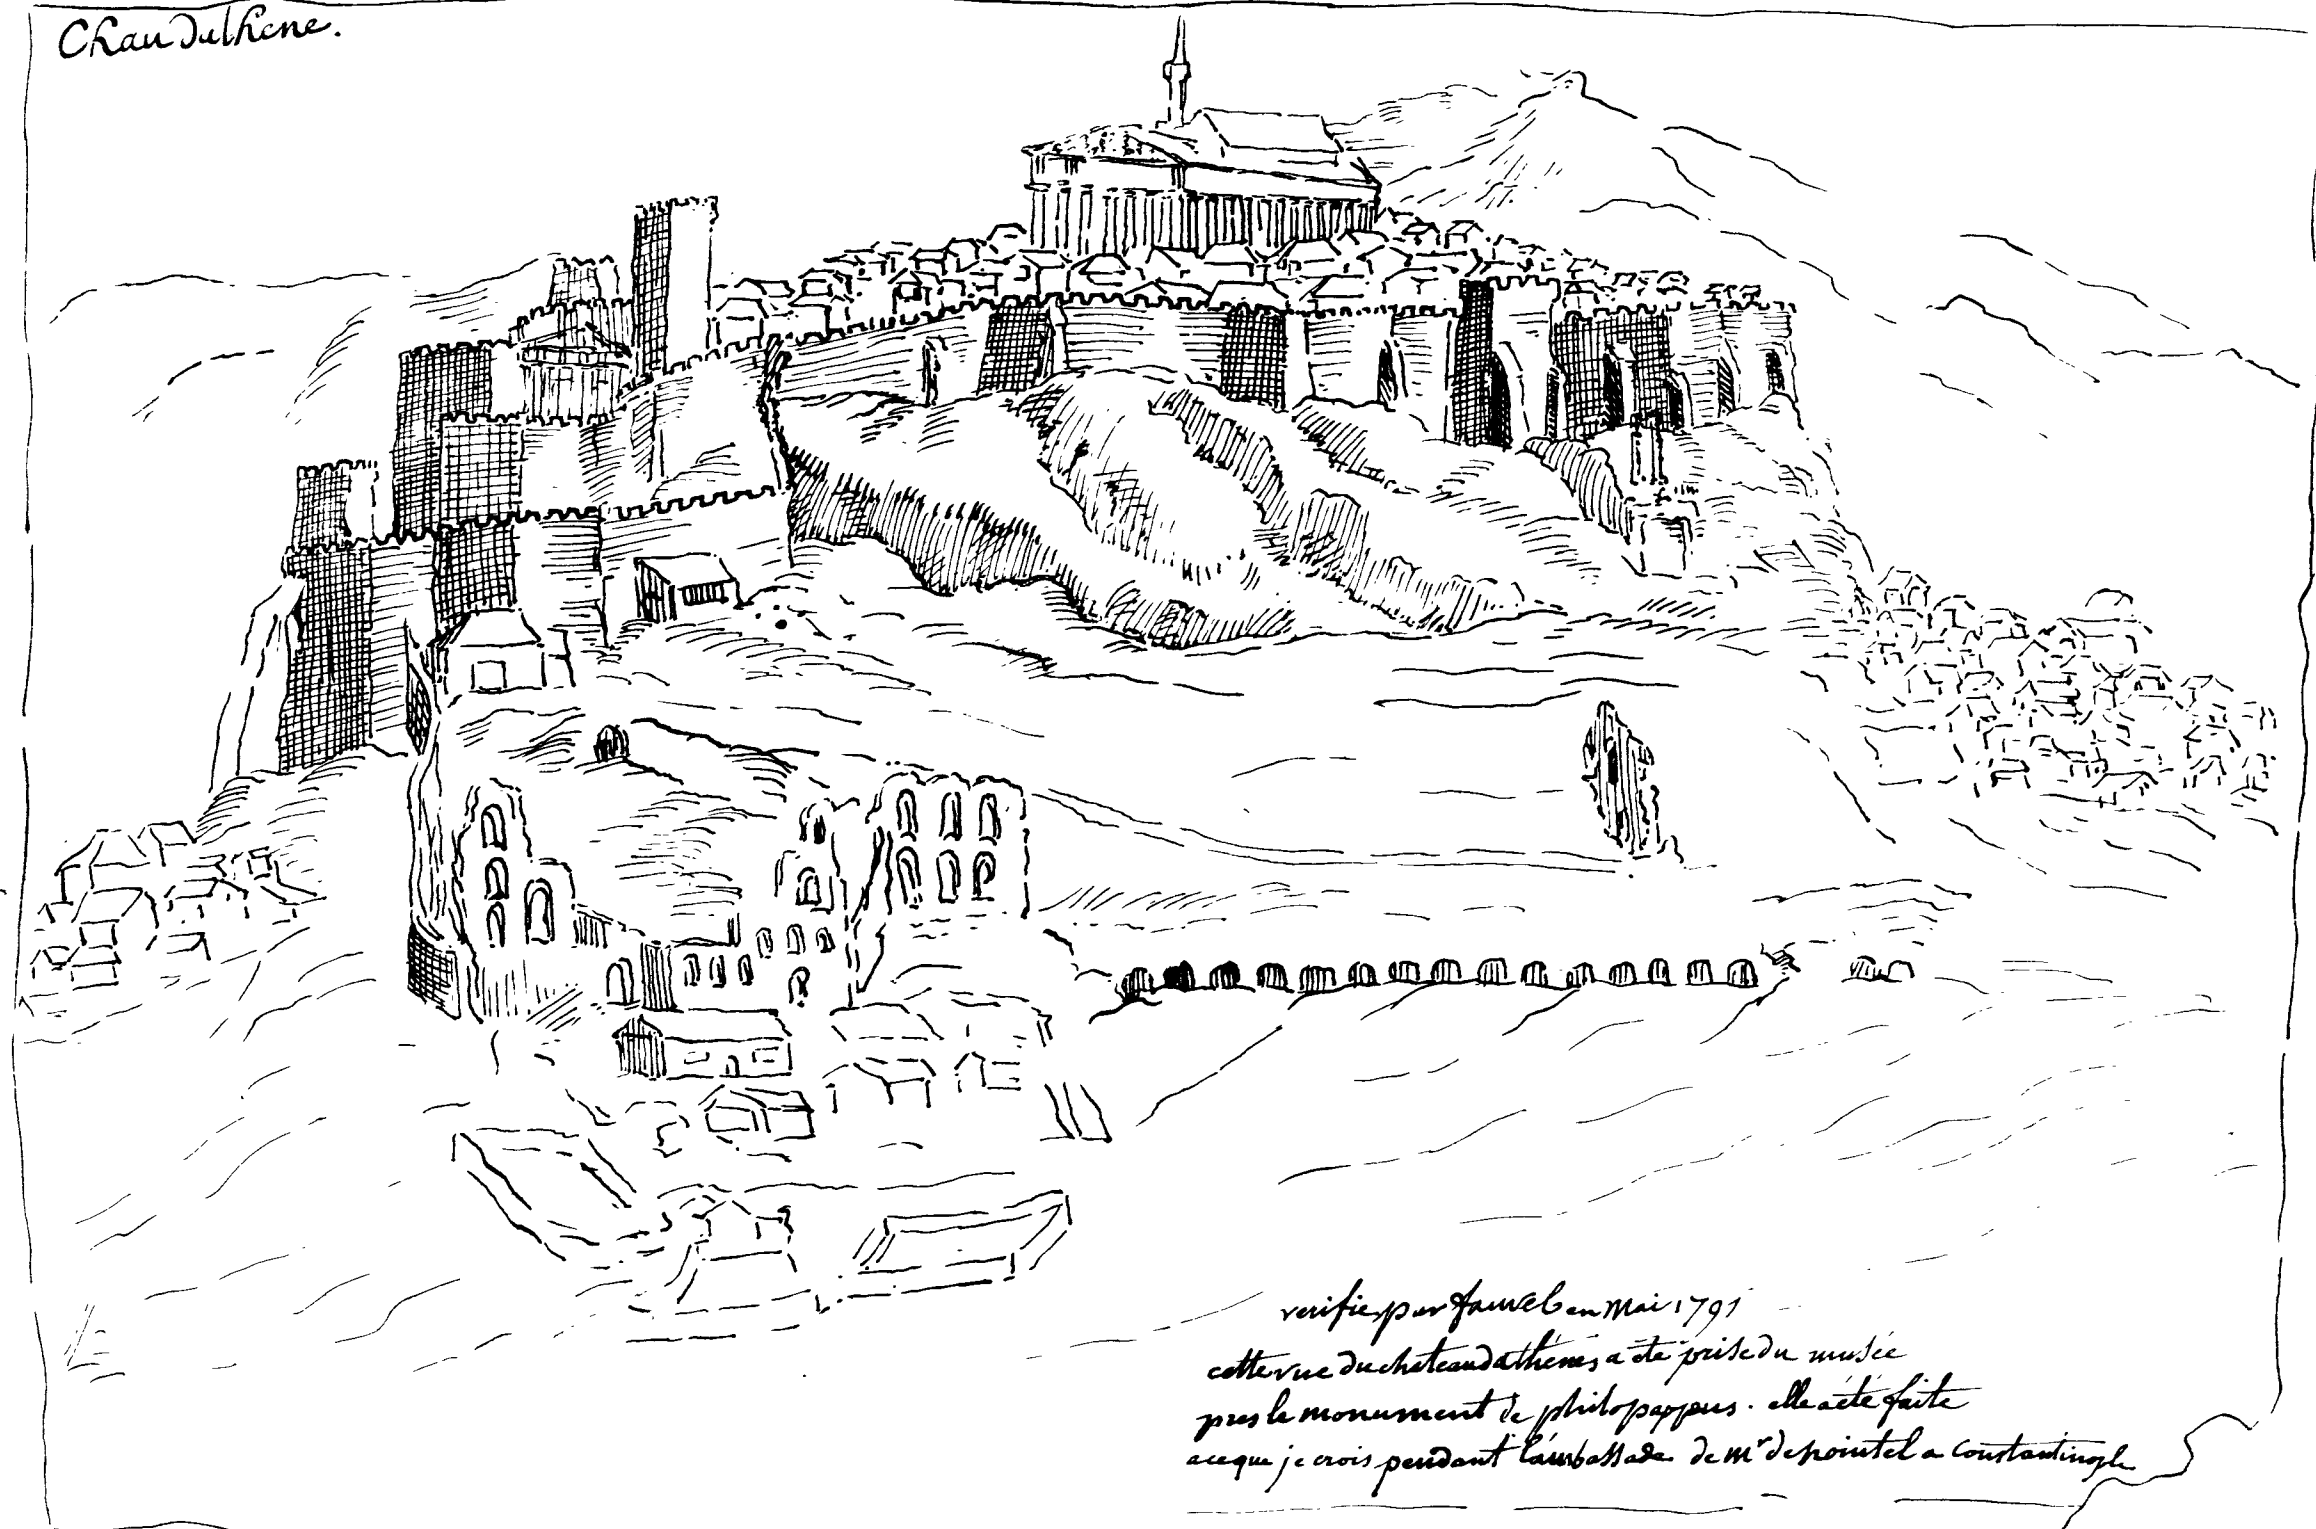 Chau Dathene.
verifie par fauvel en Mai 1791
cette vue du chateau dathénes a été prise du musée
pres le monument de philopappus. elle a été faite
a ce que je crois pendant l'ambassade de mr de pointel a Constantinople